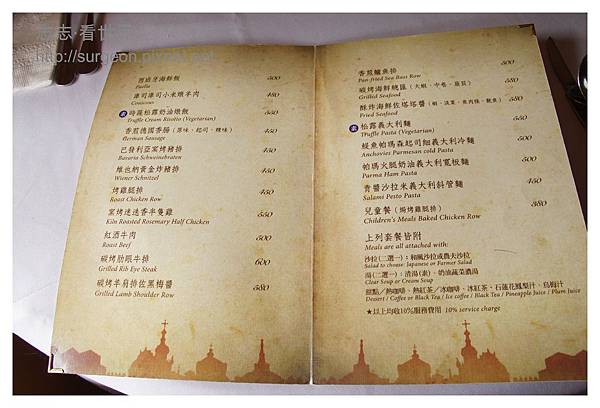 志志·看世界
http://surgeon.pixnet.net
西班牙海鮮飯 500
Paella
庫司庫司小米燉羊肉 480
Couscous
素 時蔬松露奶油燉飯 550
Truffle Cream Risotto (Vegetarian)
香煎德國香腸 (原味、起司、辣味) 450
German Sausage
巴發利亞窯烤豬排 450
Bavaria Schweinebraten
維也納黃金炸豬排 450
Wiener Schnitzel
烤雞腿排 450
Roast Chicken Row
窯烤迷迭香半隻雞 550
Kiln Roasted Rosemary Half Chicken
紅酒牛肉 500
Roast Beef
碳烤肋眼牛排 600
Grilled Rib Eye Steak
碳烤羊肩排佐黑梅醬 580
Grilled Lamb Shoulder Row
香煎鱸魚排 500
Pan-fried Sea Bass Row
碳烤海鮮總匯 500
Grilled Seafood
酥炸海鮮佐塔塔醬 500
Fried Seafood
素 松露義大利麵 550
Truffle Pasta (Vegetarian)
鯷魚帕瑪森起司細義大利冷麵 500
Anchovies Parmesan cold Pasta
帕瑪火腿奶油義大利寬板麵 500
Parma Ham Pasta
青醬沙拉米義大利斜管麵 450
Salami Pesto Pasta
兒童餐 (焗烤雞腿排) 380
Children's Meals Baked Chicken Row
上列套餐皆附
Meals are all attached with:
沙拉(二選一)：和風沙拉或農夫沙拉
Salad to choose: Japanese or Farmer Salad
湯(二選一)：清湯(素)、奶油蔬菜濃湯
Clear Soup or Cream Soup
甜點／熱咖啡、熱紅茶／冰咖啡、冰紅茶、石蓮花鳳梨汁、烏梅汁
Dessert / Coffee or Black Tea / Ice coffee / Black Tea / Pineapple Juice / Plum Juice
★以上均收10%服務費用 10% service charge